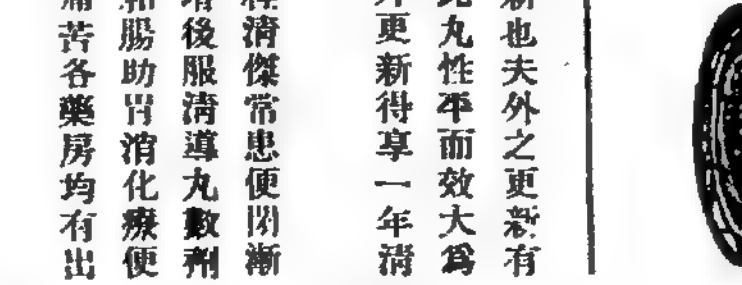 新也夫外之更新有
此丸性平而效大為
外更新得享一年清
清傑常患便閉漸
後服清導丸數劑
腸助胃消化療便
痛苦各藥房均有出